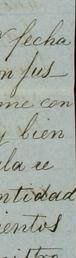 fecha
en sus
me con
y bien
la se
entidad
ientos